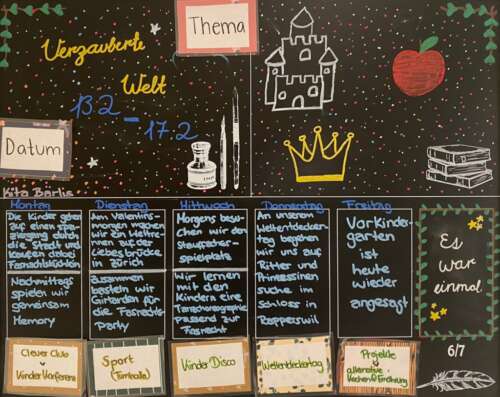 Thema
Verzauberte
Welt
13.2 - 17.2
Datum
Kita Bärlis
Montag
Die Kinder gehen
auf einen Spa-
ziergang durch
die Stadt und
kaufen dabei
Fasnachtsküchlein
Nachmittags
spielen wir
gemeinsam
Memory
Clever Club
Kinder Konferenz
Dienstag
Am Valentins-
morgen machen
wir ein Wettre-
nnen auf der
Liebesbrücke
in Zürich
Zusammen
basteln wir
Girlanden für
die Fasnachts-
Party
Sport
(Turnhalle)
Mittwoch
Morgens besu-
chen wir den
Stauffacher-
spielplatz
Wir lernen
mit den
Kindern eine
Tanzchoreographie
passend zur
Fasnacht
Kinder Disco
Donnerstag
An unserem
Weltentdecker-
tag begeben
wir uns auf
Ritter und
Prinzessinnen
suche im
Schloss in
Rapperswil
Weltentdeckertag
Freitag
Vorkinder-
garten
ist
heute
wieder
angesagt
Projekte
+
alternative
Kochen & Ernährung
Es
war
einmal
6/7